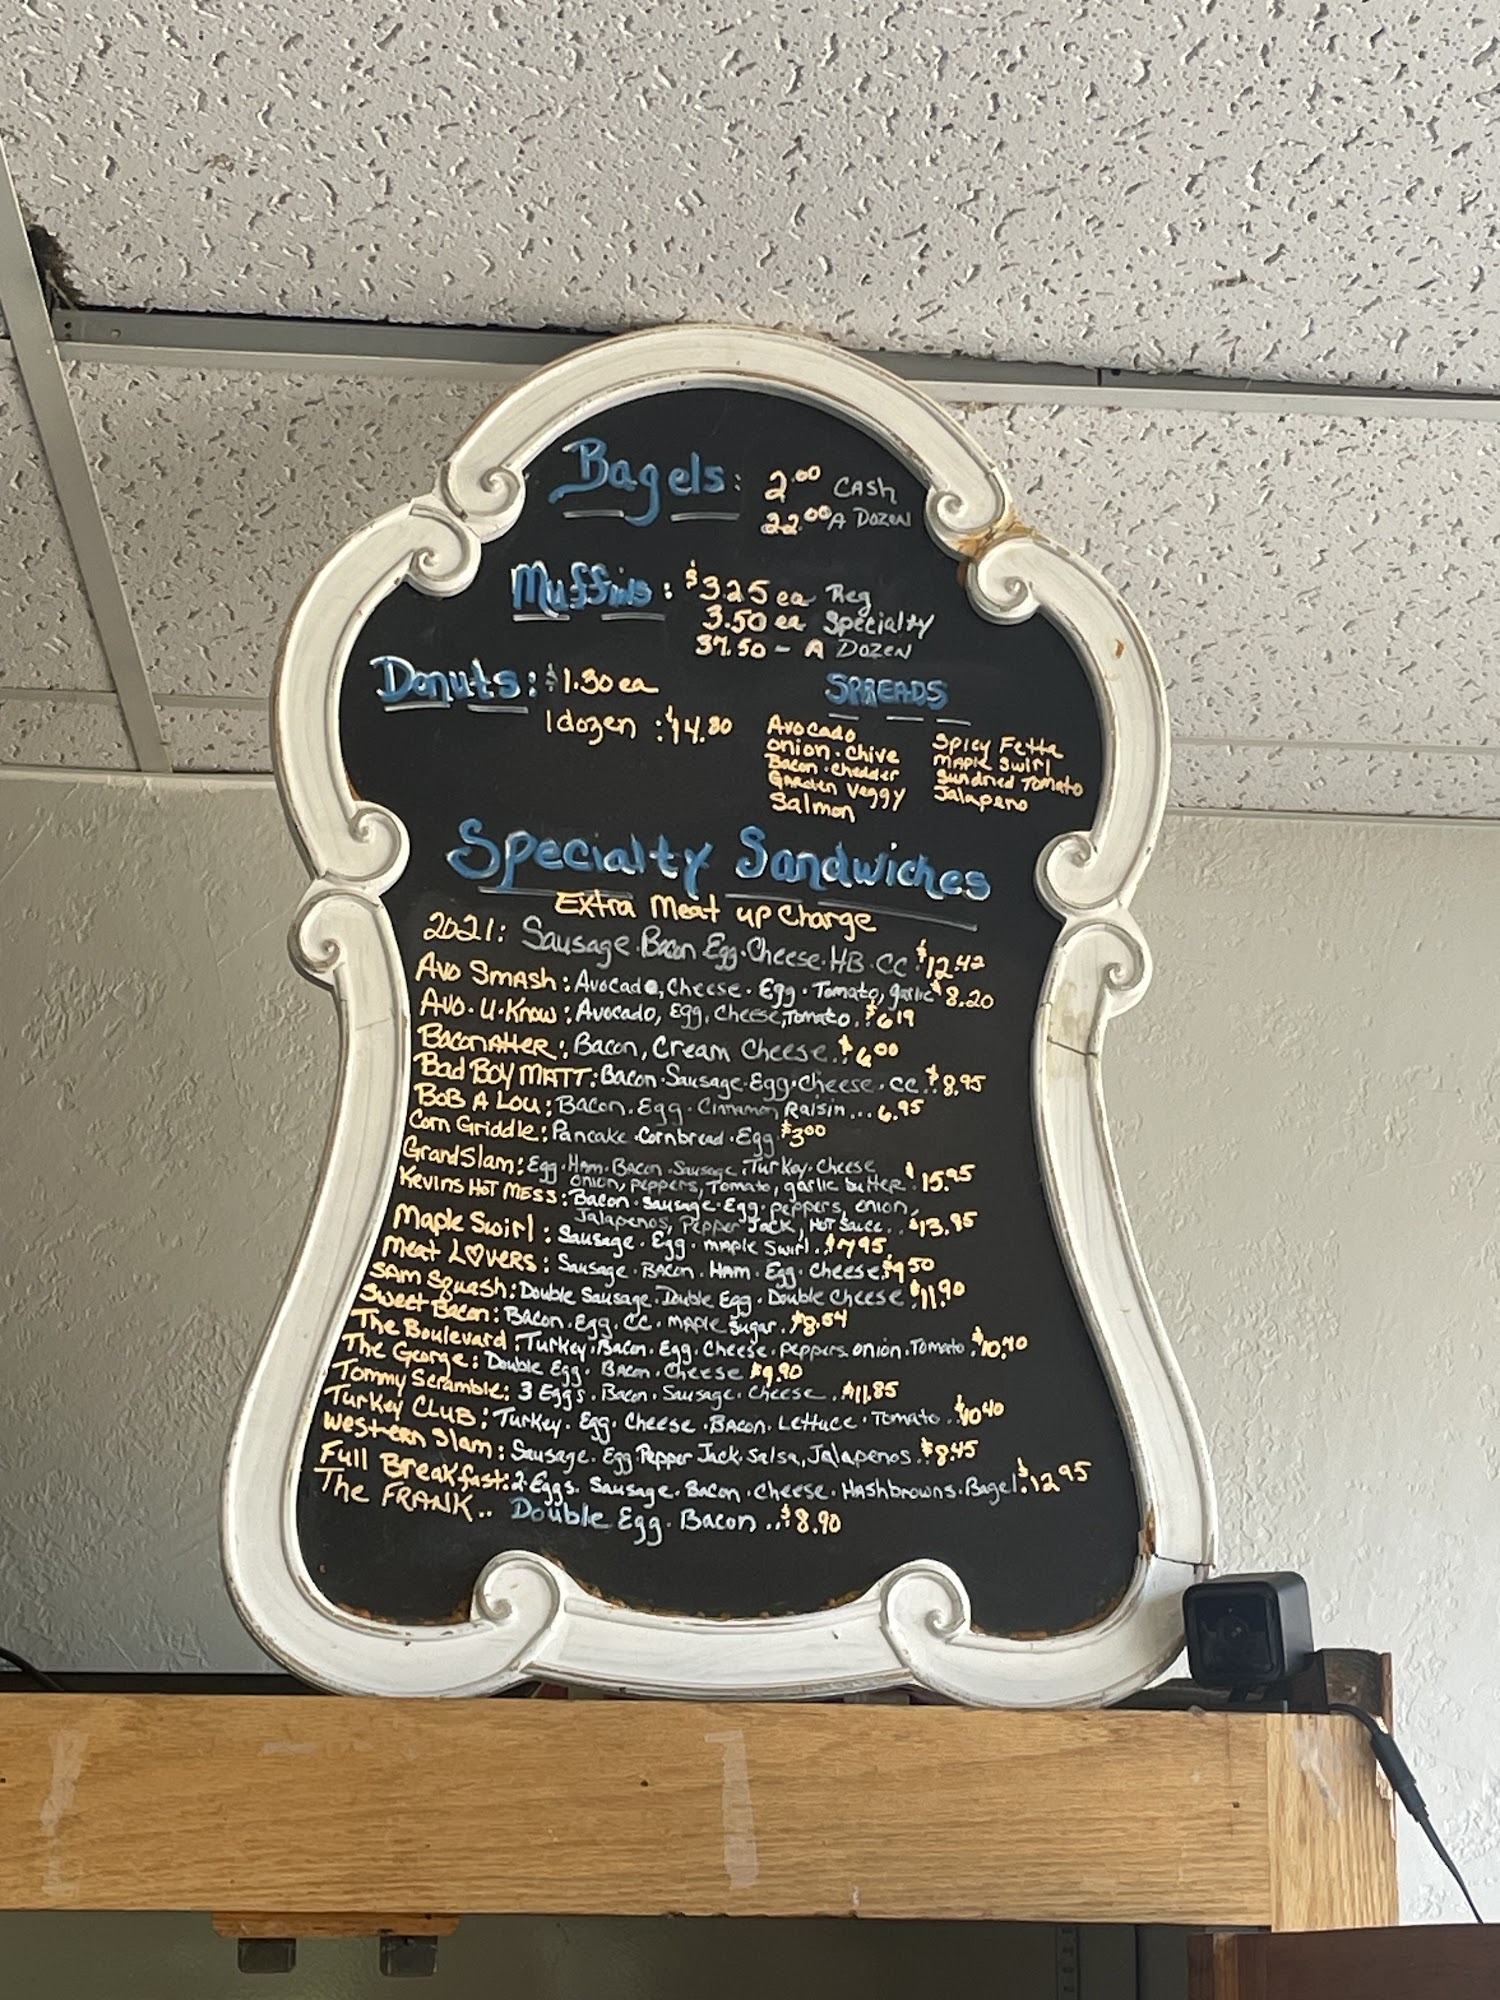 Bagels: 2.00 Cash
22.00 A Dozen
Muffins: $3.25 ea Reg
3.50 ea Specialty
37.50 - A Dozen
Donuts: $1.30 ea
1 dozen: $14.80
SPREADS
Avocado
Onion. Chive
Bacon. Chedder
Garden Veggy
Salmon
Spicy Fetta
Maple Swirl
Sundried Tomato
Jalapeno
Specialty Sandwiches
Extra Meat up Charge
2021: Sausage. Bacon. Egg. Cheese. HB. CC $12.42
Avo Smash: Avocado, Cheese. Egg. Tomato, garlic $8.20
Avo. U. Know: Avocado, Egg, Cheese, Tomato. $6.19
Baconatter: Bacon, Cream Cheese. $6.00
Bad Boy MATT: Bacon. Sausage. Egg. Cheese. CC. $8.95
Bob A Lou: Bacon. Egg. Cinnamon Raisin... 6.95
Corn Griddle: Pancake. Cornbread. Egg $3.00
Grand Slam: Egg. Ham. Bacon. Sausage. Turkey. Cheese
onion, peppers, Tomato, garlic butter. $15.95
Kevins HOT MESS: Bacon. Sausage. Egg. peppers, onion,
Jalapenos, Pepper Jack, Hot Sauce.. $13.85
Maple Swirl: Sausage. Egg. maple Swirl. $7.95
Meat L♡vers: Sausage. Bacon. Ham. Egg. Cheese. $9.50
Sam Squash: Double Sausage. Double Egg. Double Cheese $11.90
Sweet Bacon: Bacon. Egg. CC. maple sugar. $8.54
The Boulevard: Turkey. Bacon. Egg. Cheese. peppers. onion. Tomato. $10.40
The George: Double Egg, Bacon. Cheese $9.90
Tommy Scramble: 3 Eggs. Bacon. Sausage. Cheese. $11.85
Turkey CLUB: Turkey. Egg. Cheese. Bacon. Lettuce. Tomato. $10.40
Western Slam: Sausage. Egg. Pepper Jack. Salsa, Jalapenos. $8.45
Full Breakfast: 2. Eggs. Sausage. Bacon. Cheese. Hashbrowns. Bagel. $12.95
The FRANK.. Double Egg. Bacon... $8.90